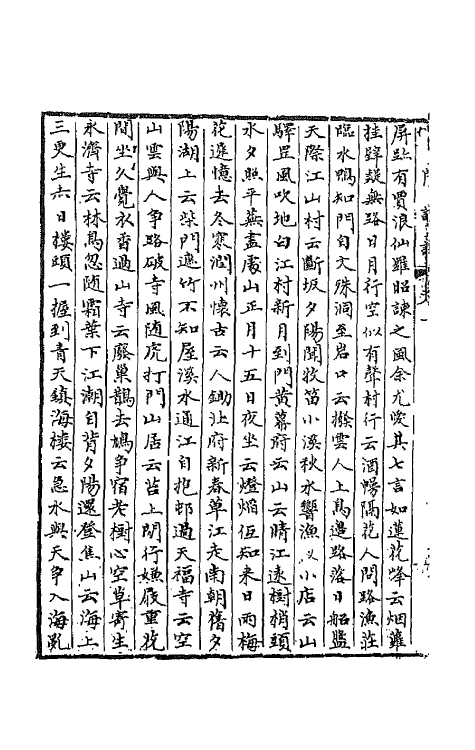 屏跡有賈浪仙雖昭諫之風余尤愛其七言如蓮花峰云烟蘿
挂蹕縱無路日月行空似有聲村行云酒幔隔花人問路漁莊
臨水鴨知門自文殊洞至岩口云撥雲人上鳥邊路落日船盤
天際江山村云斷坂夕陽聞牧笛小溪秋水響漁小店云山
驛罡風吹地白江村新月到門黃幕府云山云晴江遠樹梢頭
水夕照平蕪盡處山正月十五日夜坐云燈焰但知來日雨梅
花遙憶去冬寒潤州懷古云人鋤北府新春草江走南朝舊夕
陽湖上云柴門遮竹不知屋溪水通江自抱邨過天福寺云空
山雲與人爭路破寺風隨虎打門山居云苔上閒行嫌屐重花
間坐久覺衣香過山寺云廢巢鵲去鳩爭宿老樹心空草寄生
永濟寺云林鳥忽隨霜葉下江潮自背夕陽還登焦山云海上
三更生六日樓頭一握到青天鎮海樓云急水與天爭入海亂